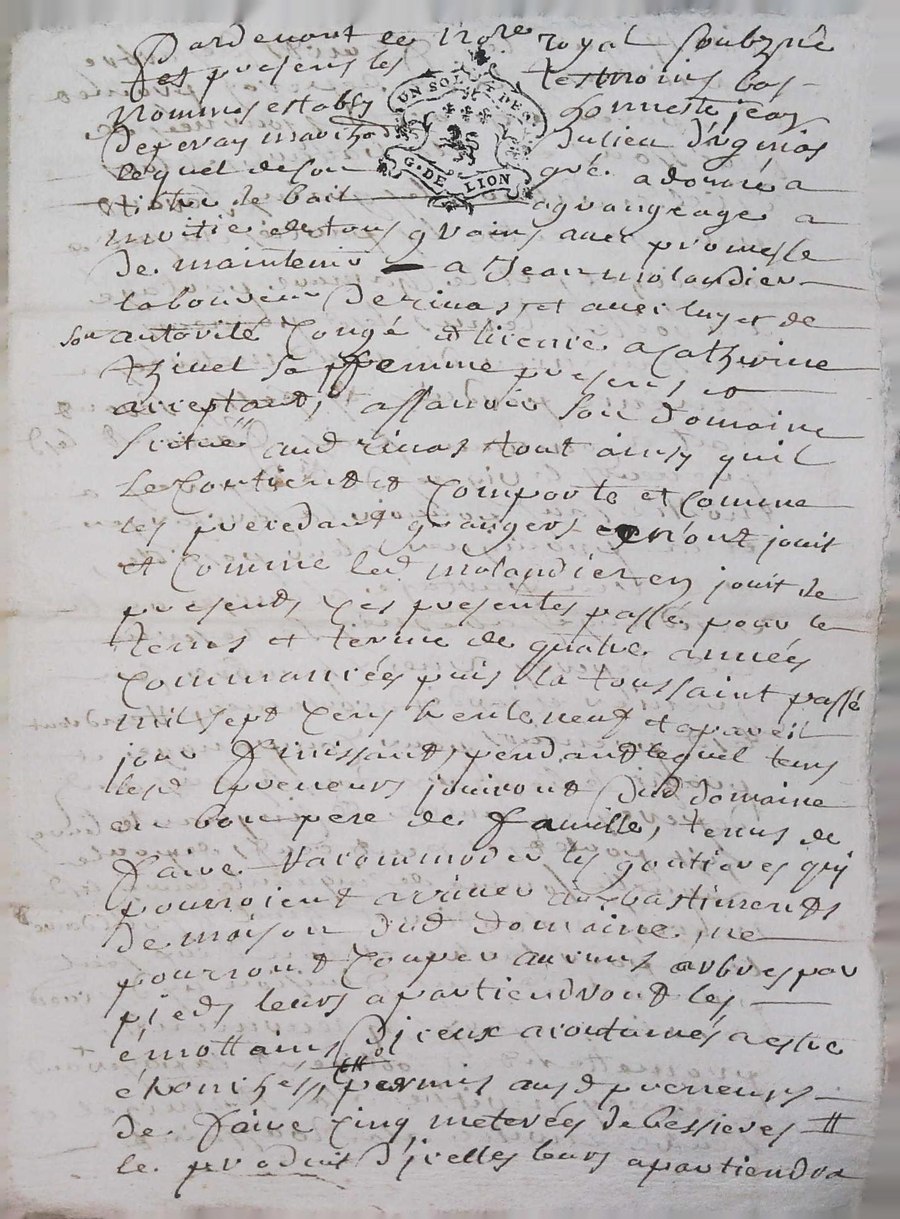 Pardevant le Nore royal soubzné
et presens les tesmoins bas
nommés estably honneste jean
deperay marchod du lieu d'
lequel de son gré a donné a
titre de bail a grangeage a
moitié de tous grains avec promesse
de maintenir a Jean molandier
laboureur de et avec luy et de
son autorité congé et licence a Catherine
thivel sa femme presens et
acceptant, assavoir son domaine
scitué aud tout ainsy quil
se contient et comporte et comme
les precedant grangers en ont jouit
et comme led molandier en jouit de
present, ces presentes passé pour le
tems et terme de quatre années
commancées puis la toussaint passé
mil sept cens trente neuf et a pareil
jour finissant, pendant lequel tems
lesd preneurs jouiront dud domaine
en bon pere de famille, tenus de
faire racommoder les goutieres quy
pourroient arriver aux bastiments
de maison dud domaine, ne
pourront couper aucuns arbres par
pieds leurs apartiendront les
émottains d'iceux acoutumés a estre
permis ausd preneurs
de faire cinq meterées de bessieres
le produit d'icelles leurs apartiendra
UN SOL DE
G. DE LION